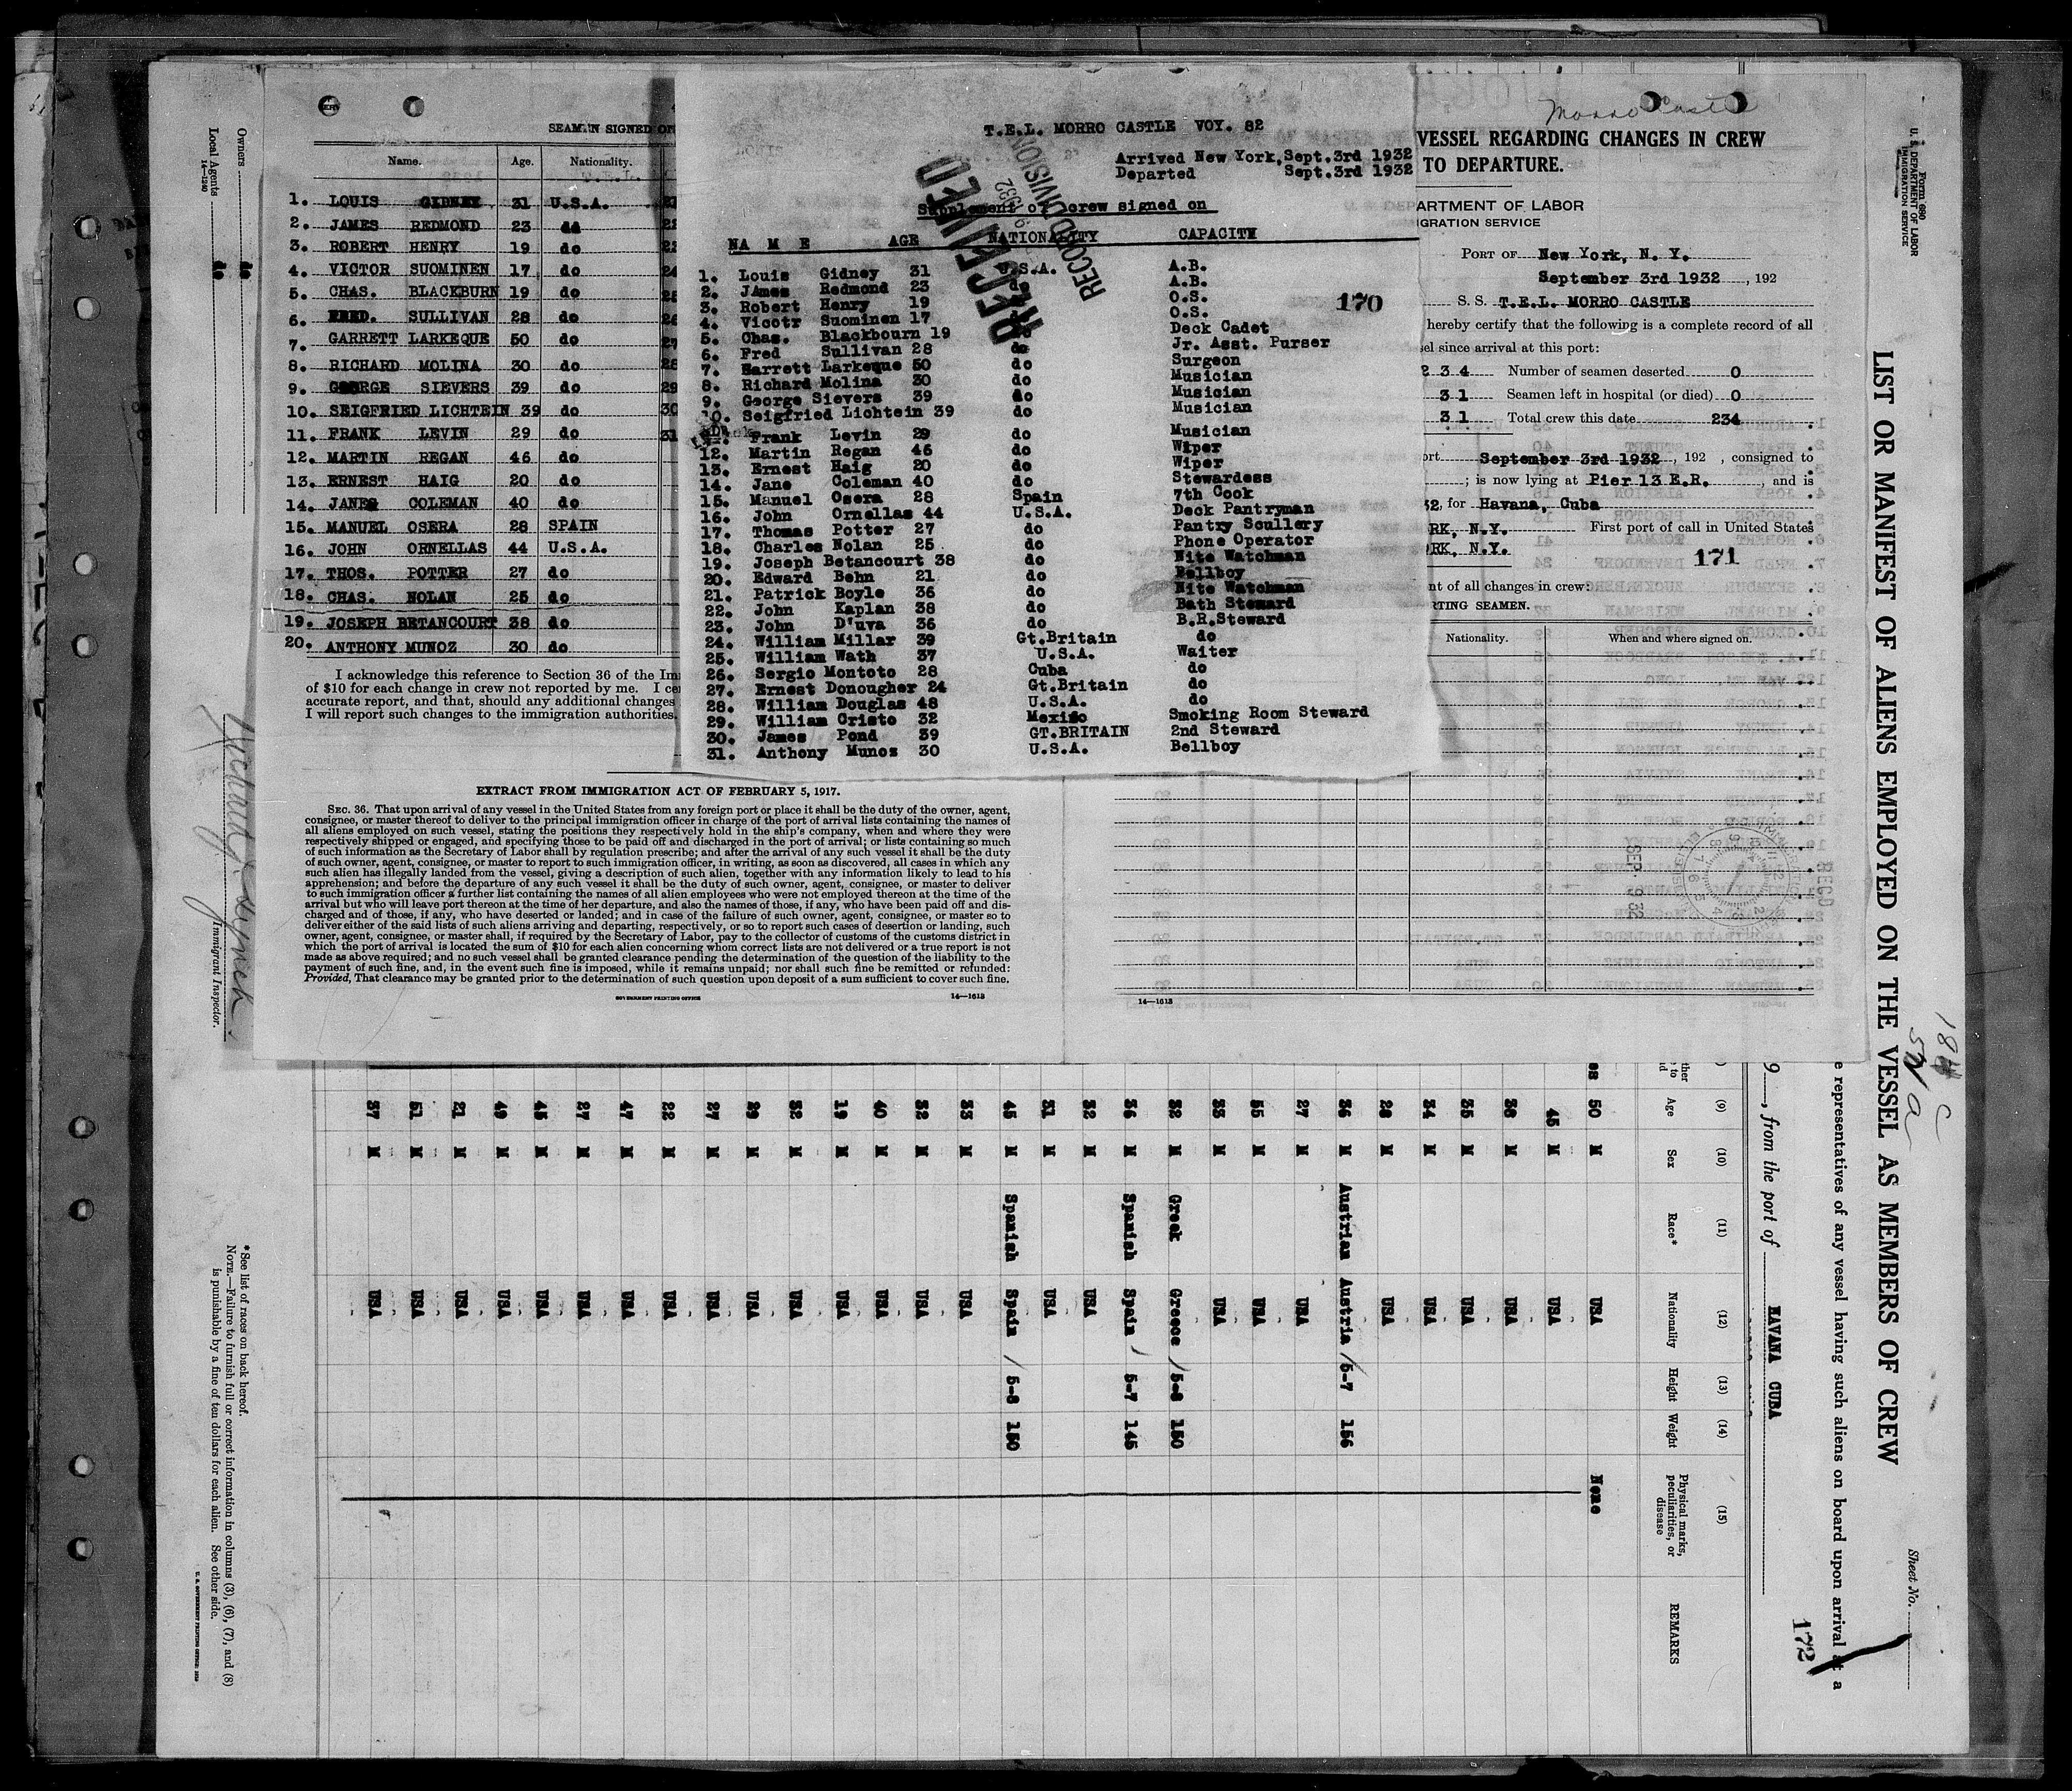 Morro Castle
T.E.L. MORRO CASTLE VOY. 82
Arrived New York, Sept. 3rd 1932
Departed Sept. 3rd 1932
Supplement of crew signed on
RECEIVED
RECORD DIVISION
NA M E AGE NATIONALITY CAPACITY
1. Louis Gidney 31 U.S.A. A.B.
2. JAmes Redmond 23 do A.B.
3. Robert Henry 19 O.S.
4. Vicotr Suominen 17 O.S.
5. Chas. Blackbourn 19 Deck Cadet
6. Fred Sullivan 28 do Jr. Asst. Purser
7. Barrett Larkeque 50 do Surgeon
8. Richard Molina 30 do Musician
9. George Sievers 39 do Musician
10. Seigfried Lichtein 39 do Musician
Frank Levin 29 do Musician
12. Martin Regan 46 do Wiper
13. Ernest Haig 20 do Wiper
14. Jane Coleman 40 do Stewardess
15. Manuel Osera 28 Spain 7th Cook
16. John Ornellas 44 U.S.A. Deck Pantryman
17. Thomas Potter 27 do Pantry Scullery
18. Charles Nolan 25 do Phone Operator
19. Joseph Betancourt 38 do Nite Watchman
20. Edward Behn 21 do Bellboy
21. Patrick Boyle 36 do Nite Watchman
22. John Kaplan 38 do Bath Steward
23. John D'uva 36 do B.R.Steward
24. William Millar 39 Gt.Britain do
25. William Wath 37 U.S.A. Waiter
26. Sergio Montoto 28 Cuba do
27. Ernest Donougher 24 Gt.Britain do
28. William Douglas 48 U.S.A. do
29. William Cristo 32 Mexico Smoking Room Steward
30. James Pond 39 GT.BRITAIN 2nd Steward
31. Anthony Munos 30 U.S.A. Bellboy
170
SEAMEN SIGNED ON
Name. Age. Nationality.
1. LOUIS GIDNEY 31 U.S.A.
2. JAMES REDMOND 23 do
3. ROBERT HENRY 19 do
4. VICTOR SUOMINEN 17 do
5. CHAS. BLACKBURN 19 do
6. FRED. SULLIVAN 28 do
7. GARRETT LARKEQUE 50 do
8. RICHARD MOLINA 30 do
9. GEORGE SIEVERS 39 do
10. SEIGFRIED LICHTEIN 39 do
11. FRANK LEVIN 29 do
12. MARTIN REGAN 46 do
13. ERNEST HAIG 20 do
14. JANE COLEMAN 40 do
15. MANUEL OSERA 28 SPAIN
16. JOHN ORNELLAS 44 U.S.A.
17. THOS. POTTER 27 do
18. CHAS. NOLAN 25 do
19. JOSEPH BETANCOURT 38 do
20. ANTHONY MUNOZ 30 do
I acknowledge this reference to Section 36 of the
of $10 for each change in crew not reported by me. I
accurate report, and that, should any additional changes
I will report such changes to the immigration authorities.
EXTRACT FROM IMMIGRATION ACT OF FEBRUARY 5, 1917.
SEC. 36. That upon arrival of any vessel in the United States from any foreign port or place it shall be the duty of the owner, agent,
consignee, or master thereof to deliver to the principal immigration officer in charge of the port of arrival lists containing the names of
all aliens employed on such vessel, stating the positions they respectively hold in the ship's company, when and where they were
respectively shipped or engaged, and specifying those to be paid off and discharged in the port of arrival; or lists containing so much
of such information as the Secretary of Labor shall by regulation prescribe; and after the arrival of any such vessel it shall be the duty
of such owner, agent, consignee, or master to report to such immigration officer, in writing, as soon as discovered, all cases in which any
such alien has illegally landed from the vessel, giving a description of such alien, together with any information likely to lead to his
apprehension; and before the departure of any such vessel it shall be the duty of such owner, agent, consignee, or master to deliver
to such immigration officer a further list containing the names of all alien employees who were not employed thereon at the time of the
arrival but who will leave port thereon at the time of her departure, and also the names of those, if any, who have been paid off and dis-
charged and of those, if any, who have deserted or landed; and in case of the failure of such owner, agent, consignee, or master so to
deliver either of the said lists of such aliens arriving and departing, respectively, or so to report such cases of desertion or landing, such
owner, agent, consignee, or master shall, if required by the Secretary of Labor, pay to the collector of customs of the customs district in
which the port of arrival is located the sum of $10 for each alien concerning whom correct lists are not delivered or a true report is not
made as above required; and no such vessel shall be granted clearance pending the determination of the question of the liability to the
payment of such fine, and, in the event such fine is imposed, while it remains unpaid; nor shall such fine be remitted or refunded:
Provided, That clearance may be granted prior to the determination of such question upon deposit of a sum sufficient to cover such fine.
GOVERNMENT PRINTING OFFICE
14—1613
VESSEL REGARDING CHANGES IN CREW
TO DEPARTURE.
DEPARTMENT OF LABOR
IMMIGRATION SERVICE
PORT OF New York, N. Y.
September 3rd 1932, 192
S. S. T.E.L. MORRO CASTLE
hereby certify that the following is a complete record of all
since arrival at this port:
234 Number of seamen deserted 0
31 Seamen left in hospital (or died) 0
31 Total crew this date 234
September 3rd 1932, 192 , consigned to
; is now lying at Pier 13 E.R. , and is
for Havana, Cuba
N.Y. First port of call in United States
N.Y.
171
of all changes in crew:
SEAMEN.
Nationality. When and where signed on.
14—1613
Form 680
U. S. DEPARTMENT OF LABOR
IMMIGRATION SERVICE
Sheet No.
LIST OR MANIFEST OF ALIENS EMPLOYED ON THE VESSEL AS MEMBERS OF CREW
representatives of any vessel having such aliens on board upon arrival at a
, from the port of HAVANA CUBA
172
(9) (10) (11) (12) (13) (14) (15)
Age Sex Race* Nationality Height Weight Physical marks, peculiarities, or disease REMARKS
50 M USA None
45 M USA
38 M USA
35 M USA
34 M USA
28 M USA
36 M Austrian Austria 5-7 156
27 M USA
55 M USA
33 M USA
32 M Greek Greece 5-8 150
36 M Spanish Spain 5-7 145
32 M USA
31 M USA
45 M Spanish Spain 5-8 150
33 M USA
32 M USA
40 M USA
19 M USA
32 M USA
39 M USA
27 M USA
22 M USA
47 M USA
27 M USA
45 M USA
49 M USA
21 M USA
51 M USA
37 M USA
*See list of races on back hereof.
NOTE.—Failure to furnish full or correct information in columns (3), (6), (7), and (8)
is punishable by a fine of ten dollars for each alien. See other side.
U. S. GOVERNMENT PRINTING OFFICE
Owners do
Local Agents do
14—1240
Immigrant Inspector.